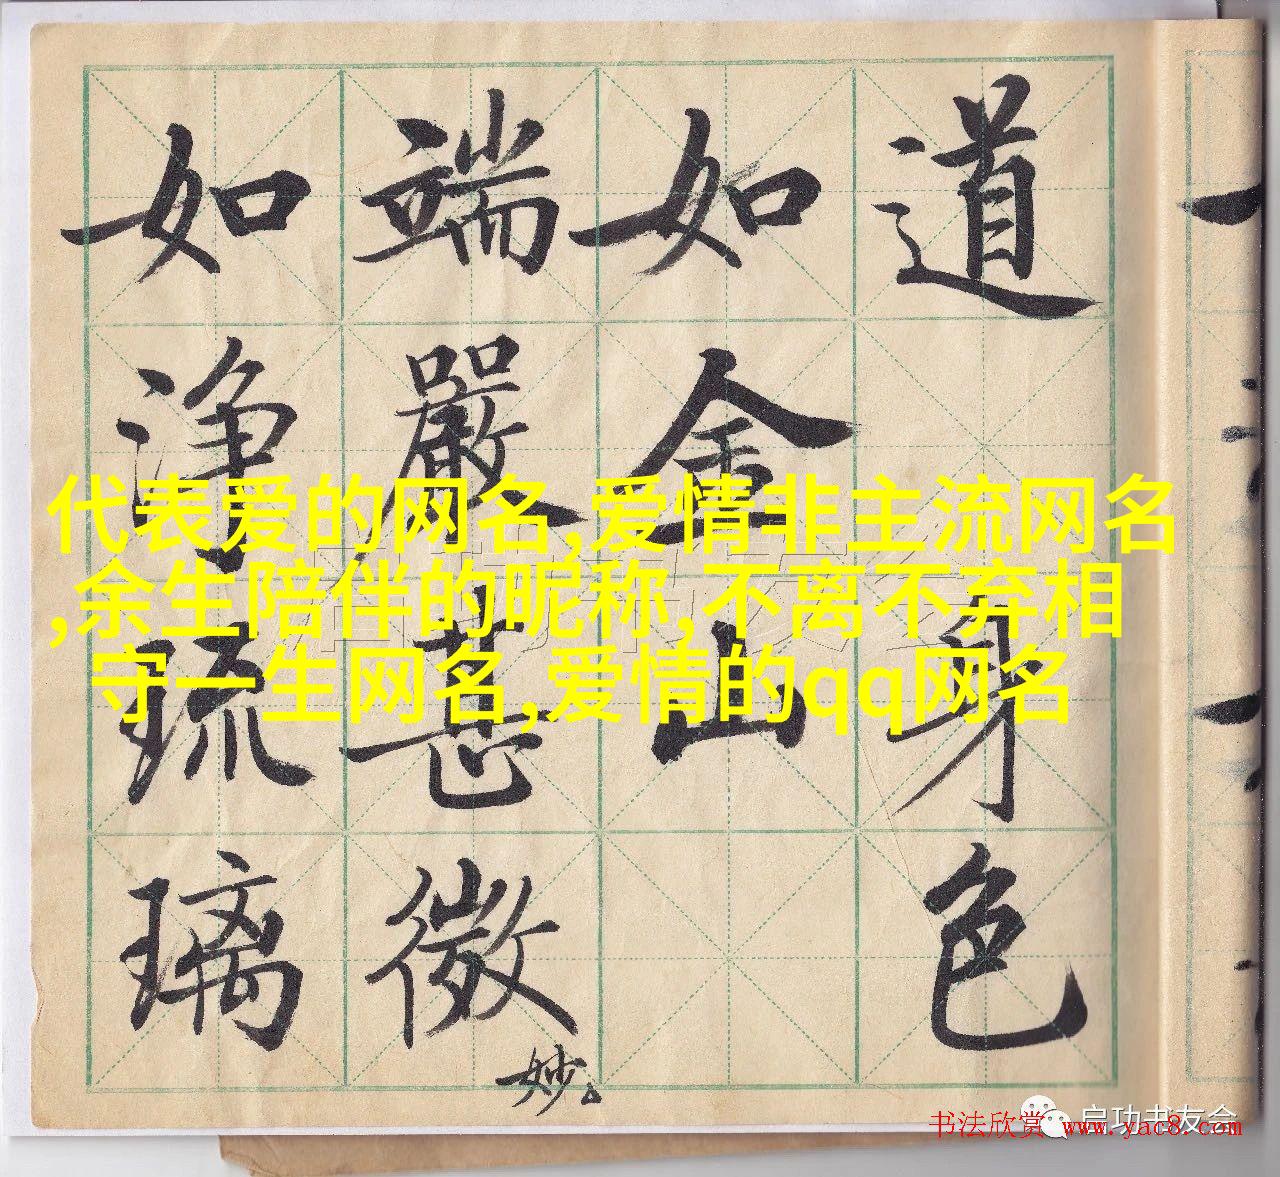 道身色
如金山
端嚴甚微
妙
如淨琉璃
代表爱的网名,爱情非主流网名
,余生陪伴的昵称,不离不弃相
守一生网名,爱情的qq网名
启功书友会
书法欣赏 www.yac8.com